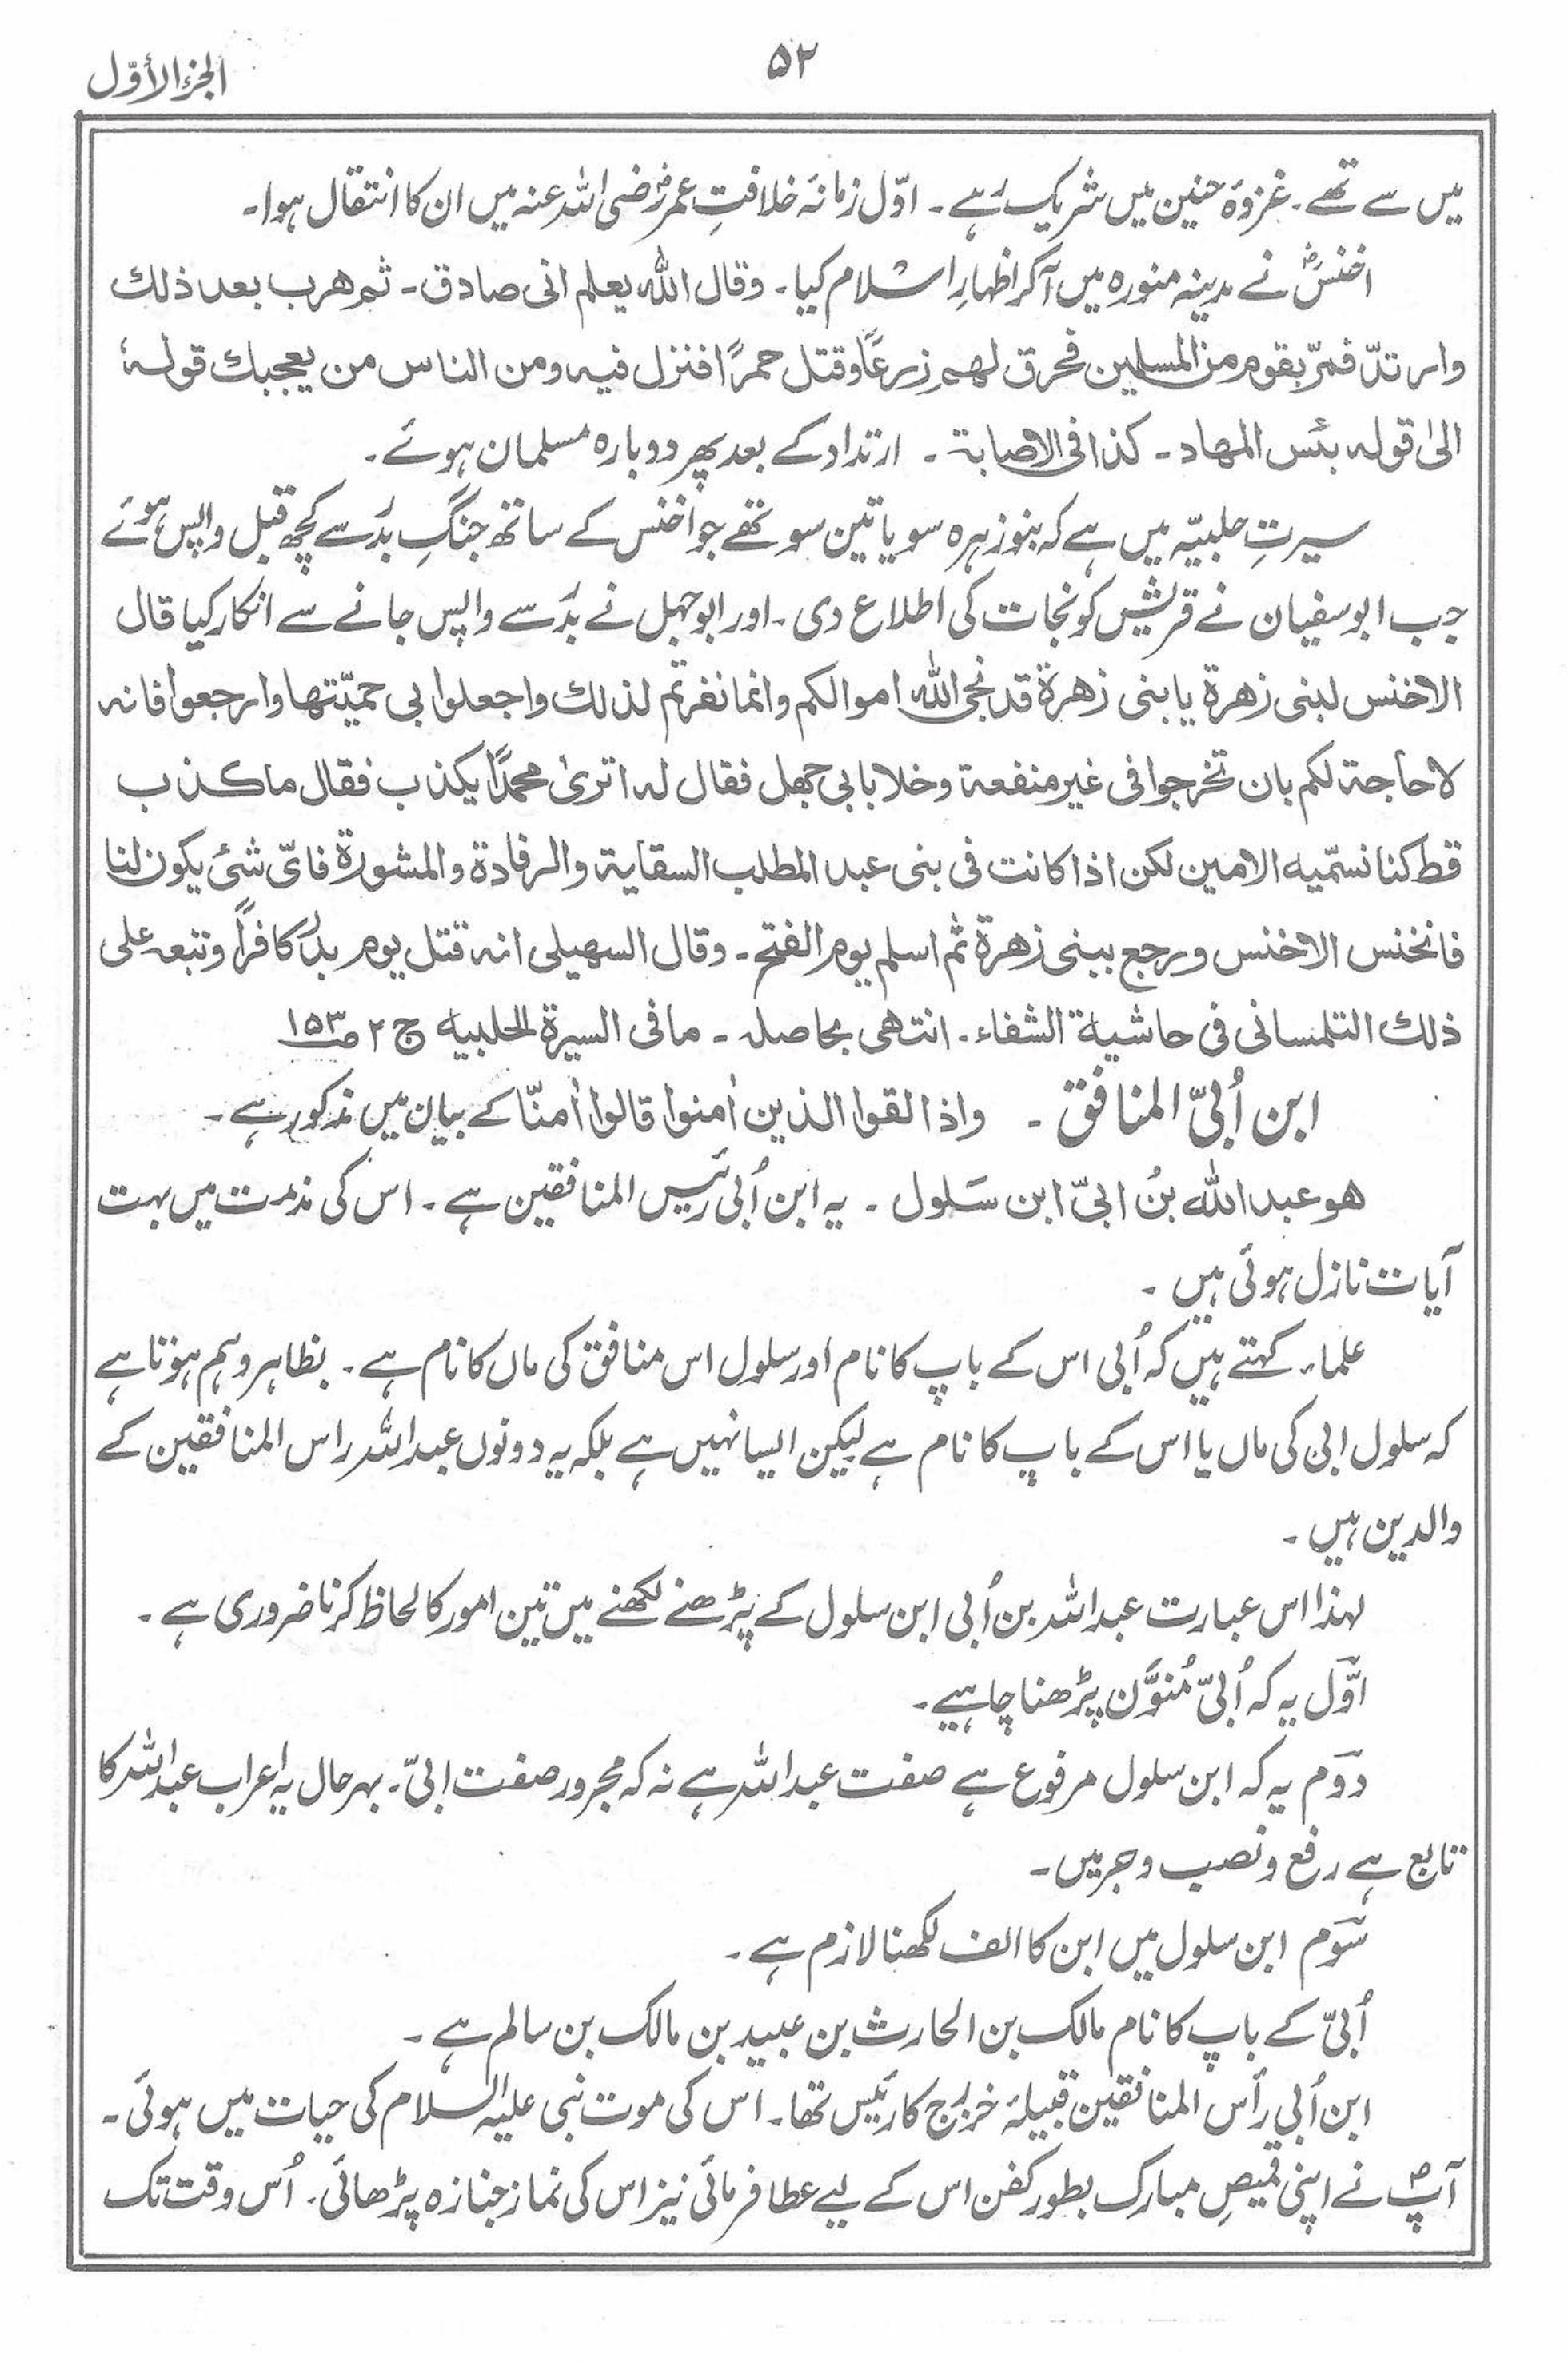 الجزء الأوّل
۵۲
میں سے تھے۔ غزوۂ حنین میں شریک رہے۔ اوّل زمانۂ خلافتِ عمر رضی اللہ عنہ میں ان کا انتقال ہوا۔
اخنسؓ نے مدینہ منورہ میں آکر اظہارِ اسلام کیا۔ وقال اللہ یعلم انی صادق۔ ثم ھرب بعد ذلك
وارتدّ فمرّ بقوم من المسلمین فحرق لھم زرعًا وقتل حمرًا فنزل فیہ ومن الناس من یعجبك قولہٗ
الیٰ قولہ بئس المھاد۔ کذا فی الاصابۃ۔ ارتداد کے بعد پھر دوبارہ مسلمان ہوئے۔
سیرتِ حلبیّہ میں ہے کہ بنو زہرہ سو یا تین سو تھے جو اخنس کے ساتھ جنگِ بدر سے کچھ قبل واپس ہوئے
جب ابوسفیان نے قریش کو نجات کی اطلاع دی۔ اور ابوجہل نے بدر سے واپس جانے سے انکار کیا قال
الاخنس لبنی زھرۃ یا بنی زھرۃ قد نجی اللہ اموالکم وانما نفرتم لذلك واجعلوا بی حمیّتھا وارجعوا فانہ
لاحاجۃ لکم بان تخرجوا فی غیر منفعۃ وخلا بابی جھل فقال لہ اتریٰ محمدًا یکذب فقال ماکذب
قط کنا نسمّیہ الامین لکن اذا کانت فی بنی عبد المطلب السقایۃ والرفادۃ والمشورۃ فایّ شئ یکون لنا
فانخنس الاخنس ورجع ببنی زھرۃ ثم اسلم یوم الفتح۔ وقال السھیلی انہ قتل یوم بدر کافرًا وتبعہ علی
ذلك التلمسانی فی حاشیۃ الشفاء۔ انتھی بحاصلہ۔ ما فی السیرۃ الحلبیہ ج ۲ ص۱۵۳
ابن اُبیّ المنافق۔ واذا لقوا الذین اٰمنوا قالوا اٰمنّا کے بیان میں مذکور ہے۔
ھو عبد اللہ بنُ ابیّ ابن سَلول۔ یہ ابن اُبی رئیس المنافقین ہے۔ اس کی مذمت میں بہت
آیات نازل ہوئی ہیں۔
علماء کہتے ہیں کہ اُبی اس کے باپ کا نام اور سلول اس منافق کی ماں کا نام ہے۔ بظاہر وہم ہوتا ہے
کہ سلول ابی کی ماں یا اس کے باپ کا نام ہے لیکن ایسا نہیں ہے بلکہ یہ دونوں عبداللہ راس المنافقین کے
والدین ہیں۔
لہذا اس عبارت عبداللہ بن اُبی ابن سلول کے پڑھنے لکھنے میں تین امور کا لحاظ کرنا ضروری ہے۔
اوّل یہ کہ اُبیّ مُنوَّن پڑھنا چاہیے۔
دوم یہ کہ ابن سلول مرفوع ہے صفت عبداللہ ہے نہ کہ مجرور صفت ابیّ۔ بہرحال یہ اعراب عبداللہ کا
تابع ہے رفع و نصب و جر میں۔
سوم ابن سلول میں ابن کا الف لکھنا لازم ہے۔
اُبیّ کے باپ کا نام مالک بن الحارث بن عبید بن مالک بن سالم ہے۔
ابن اُبی رأس المنافقین قبیلۂ خزرج کا رئیس تھا۔ اس کی موت نبی علیہ السلام کی حیات میں ہوئی۔
آپؐ نے اپنی قمیصِ مبارک بطور کفن اس کے لیے عطا فرمائی نیز اس کی نماز جنازہ پڑھائی۔ اُس وقت تک